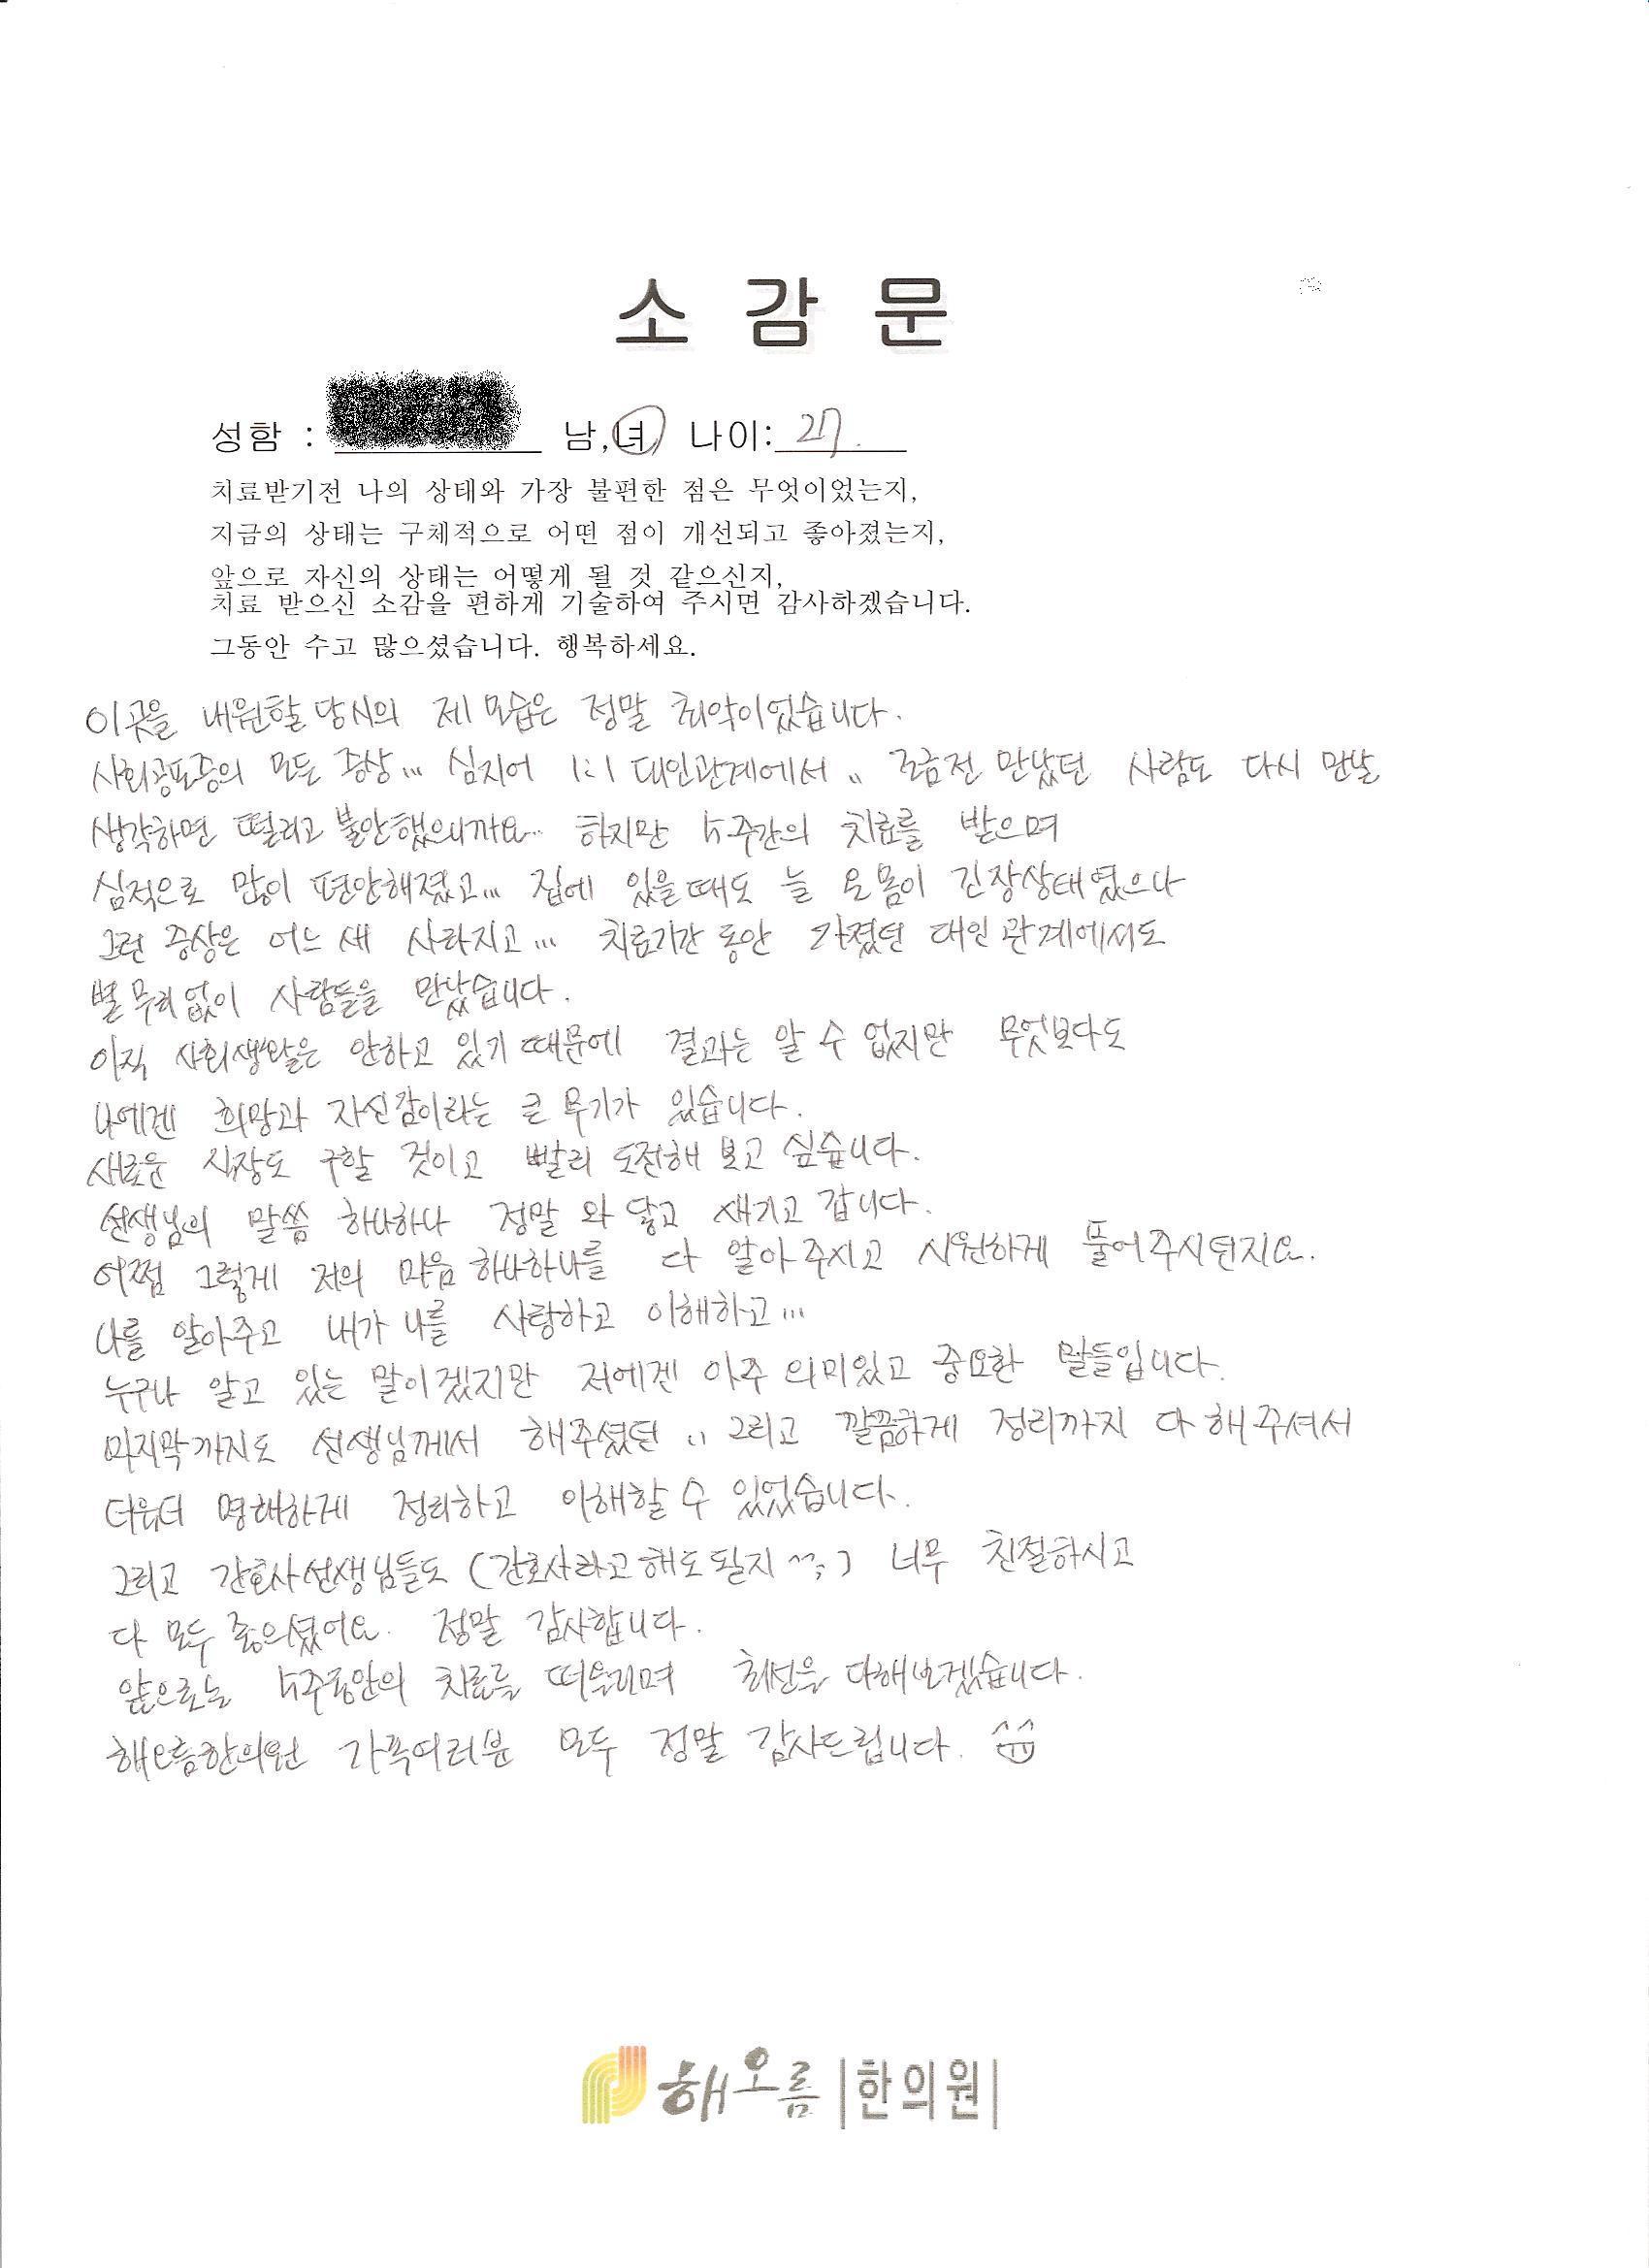 소 감 문
성함 : 남,녀 나이: 27.
치료받기전 나의 상태와 가장 불편한 점은 무엇이었는지,
지금의 상태는 구체적으로 어떤 점이 개선되고 좋아졌는지,
앞으로 자신의 상태는 어떻게 될 것 같으신지,
치료 받으신 소감을 편하게 기술하여 주시면 감사하겠습니다.
그동안 수고 많으셨습니다. 행복하세요.
이곳을 내원할 당시의 제 모습은 정말 최악이었습니다.
사회공포증의 모든 증상... 심지어 1:1 대인관계에서.. 조금전 만났던 사람도 다시 만날
생각하면 떨리고 불안했으니까요... 하지만 5주간의 치료를 받으며
심적으로 많이 편안해졌고... 집에 있을때도 늘 온몸이 긴장상태였으나
그런 증상은 어느새 사라지고... 치료기간 동안 가졌던 대인관계에서도
별 무리없이 사람들을 만났습니다.
아직 사회생활은 안하고 있기 때문에 결과는 알 수 없지만 무엇보다도
나에겐 희망과 자신감이라는 큰 무기가 있습니다.
새로운 직장도 구할 것이고 빨리 도전해 보고 싶습니다.
선생님의 말씀 하나하나 정말 와 닿고 새기고 갑니다.
어쩜 그렇게 저의 마음 하나하나를 다 알아주시고 시원하게 풀어주시던지요.
나를 알아주고 내가 나를 사랑하고 이해하고...
누구나 알고 있는 말이겠지만 저에겐 아주 의미있고 중요한 말들입니다.
마지막까지도 선생님께서 해주셨던.. 그리고 깔끔하게 정리까지 다 해주셔서
더욱더 명쾌하게 정리하고 이해할 수 있었습니다.
그리고 간호사선생님들도 (간호사라고 해도 될지 ^^;) 너무 친절하시고
다 모두 좋으셨어요. 정말 감사합니다.
앞으로는 5주동안의 치료를 떠올리며 최선을 다해보겠습니다.
해오름한의원 가족여러분 모두 정말 감사드립니다.
해오름 |한의원|